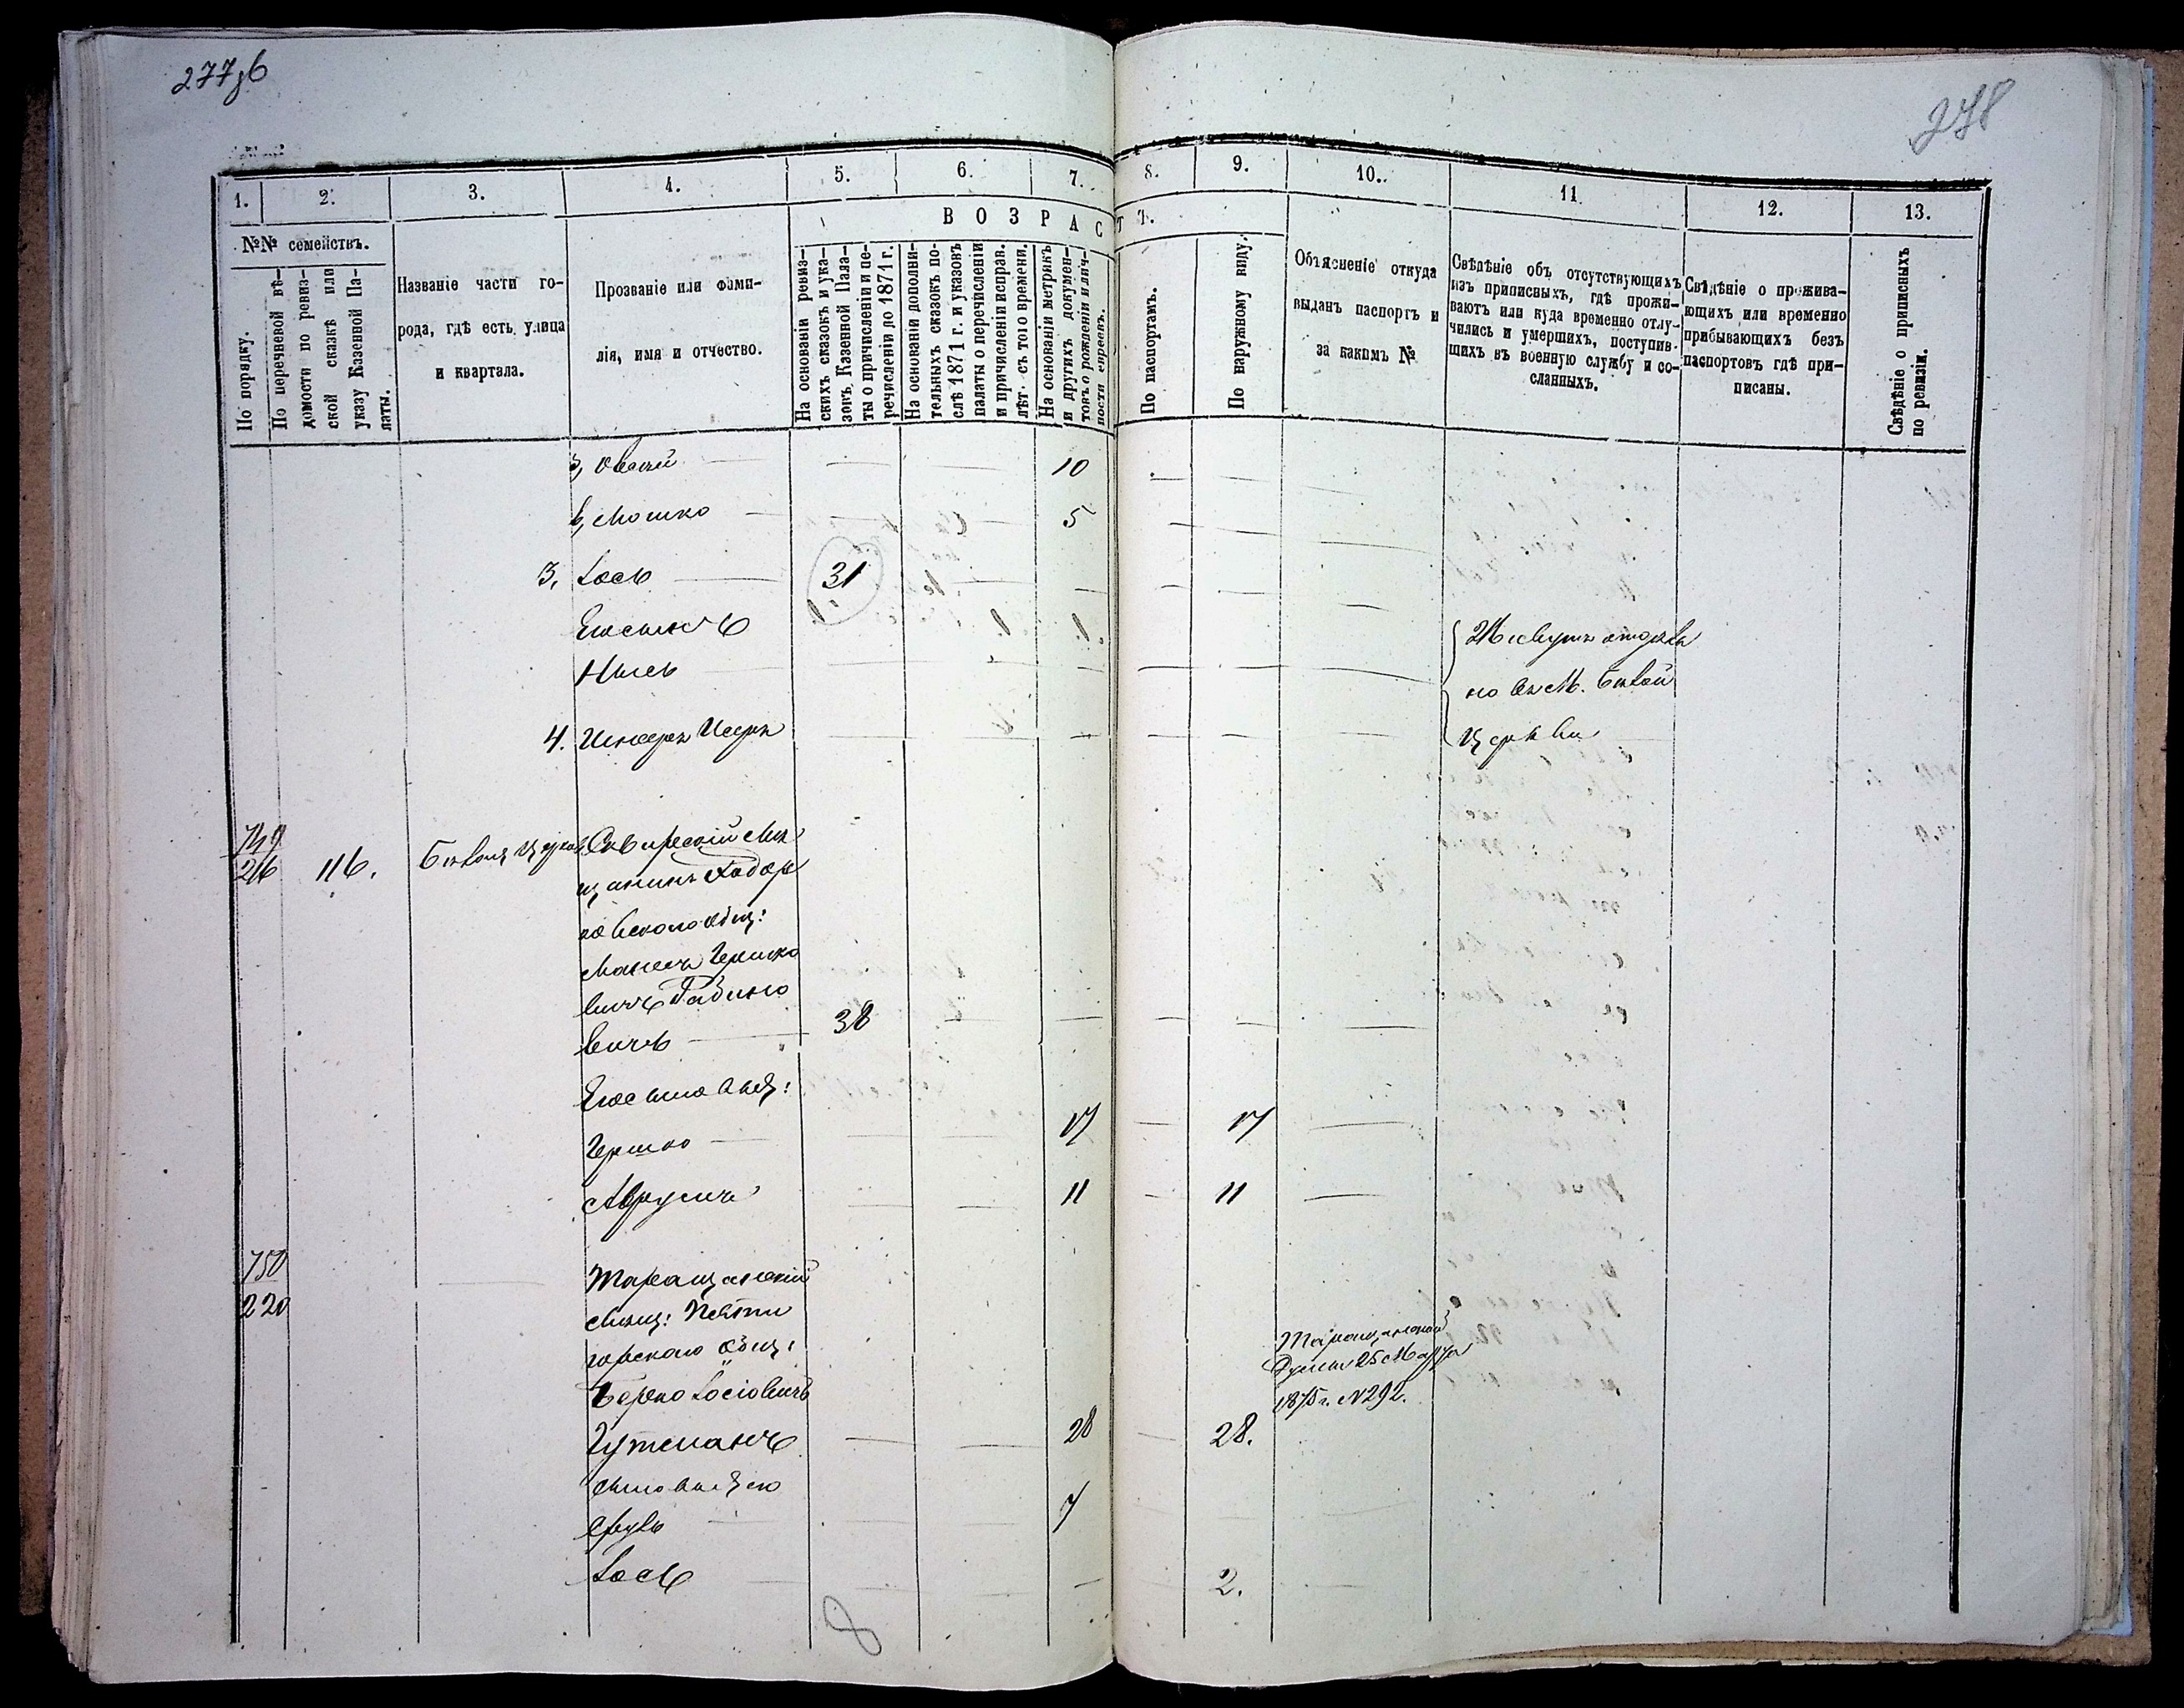 277об
278
1.
2.
3.
4.
5.
6.
7.
8.
9.
10.
11
12.
13.
№№ семействъ.
По порядку.
По перечневой вѣ-
домости по ревиз-
ской сказкѣ или
указу Казенной Па-
латы.
Названіе части го-
рода, гдѣ есть улица
и квартала.
Прозваніе или фами-
лія, имя и отчество.
ВОЗРАСТЪ.
На основаніи ревиз-
скихъ сказокъ и ука-
зовъ Казенной Пала-
ты о причисленіи и пе-
речисленіи до 1871 г.
На основаніи дополни-
тельныхъ сказокъ по-
слѣ 1871 г. и указовъ
палаты о перечисленіи
и причисленіи исправ.
лѣт. съ того времени.
На основаніи метрикъ
и другихъ докумен-
товъ о рожденіи и лич-
ности евреевъ.
По паспортамъ.
По наружному виду.
Объясненіе откуда
выданъ паспортъ и
за какимъ №
Свѣдѣніе объ отсутствующихъ
изъ приписныхъ, гдѣ прожи-
ваютъ или куда временно отлу-
чились и умершихъ, поступив-
шихъ въ военную службу и со-
сланныхъ.
Свѣдѣніе о прожива-
ющихъ или временно
прибывающихъ безъ
паспортовъ гдѣ при-
писаны.
Свѣдѣніе о приписныхъ
по ревизіи.
Овсей 10
Мошко 5
3, Іось 31
Нысь
4.
Живутъ отдѣль
но въ М. Бѣлой
Церкви
749
216 116. Бѣлая Церковь Сквирскій Мѣ
щанинъ Ходор
ковскаго общ:
Манесъ Гершко
вичъ Рабино
вичъ 38
Гершко 17 17
Аврумъ 11 11
750
220
Таращанскій
Мѣщ: Пяти
горскаго общ:
Берко Іосіовичъ
Гутманъ 28 28.
Таращанской
Думы 25 Марта
1875 г. №292.
сыновья его
Сруль 7
Іось 2.
8